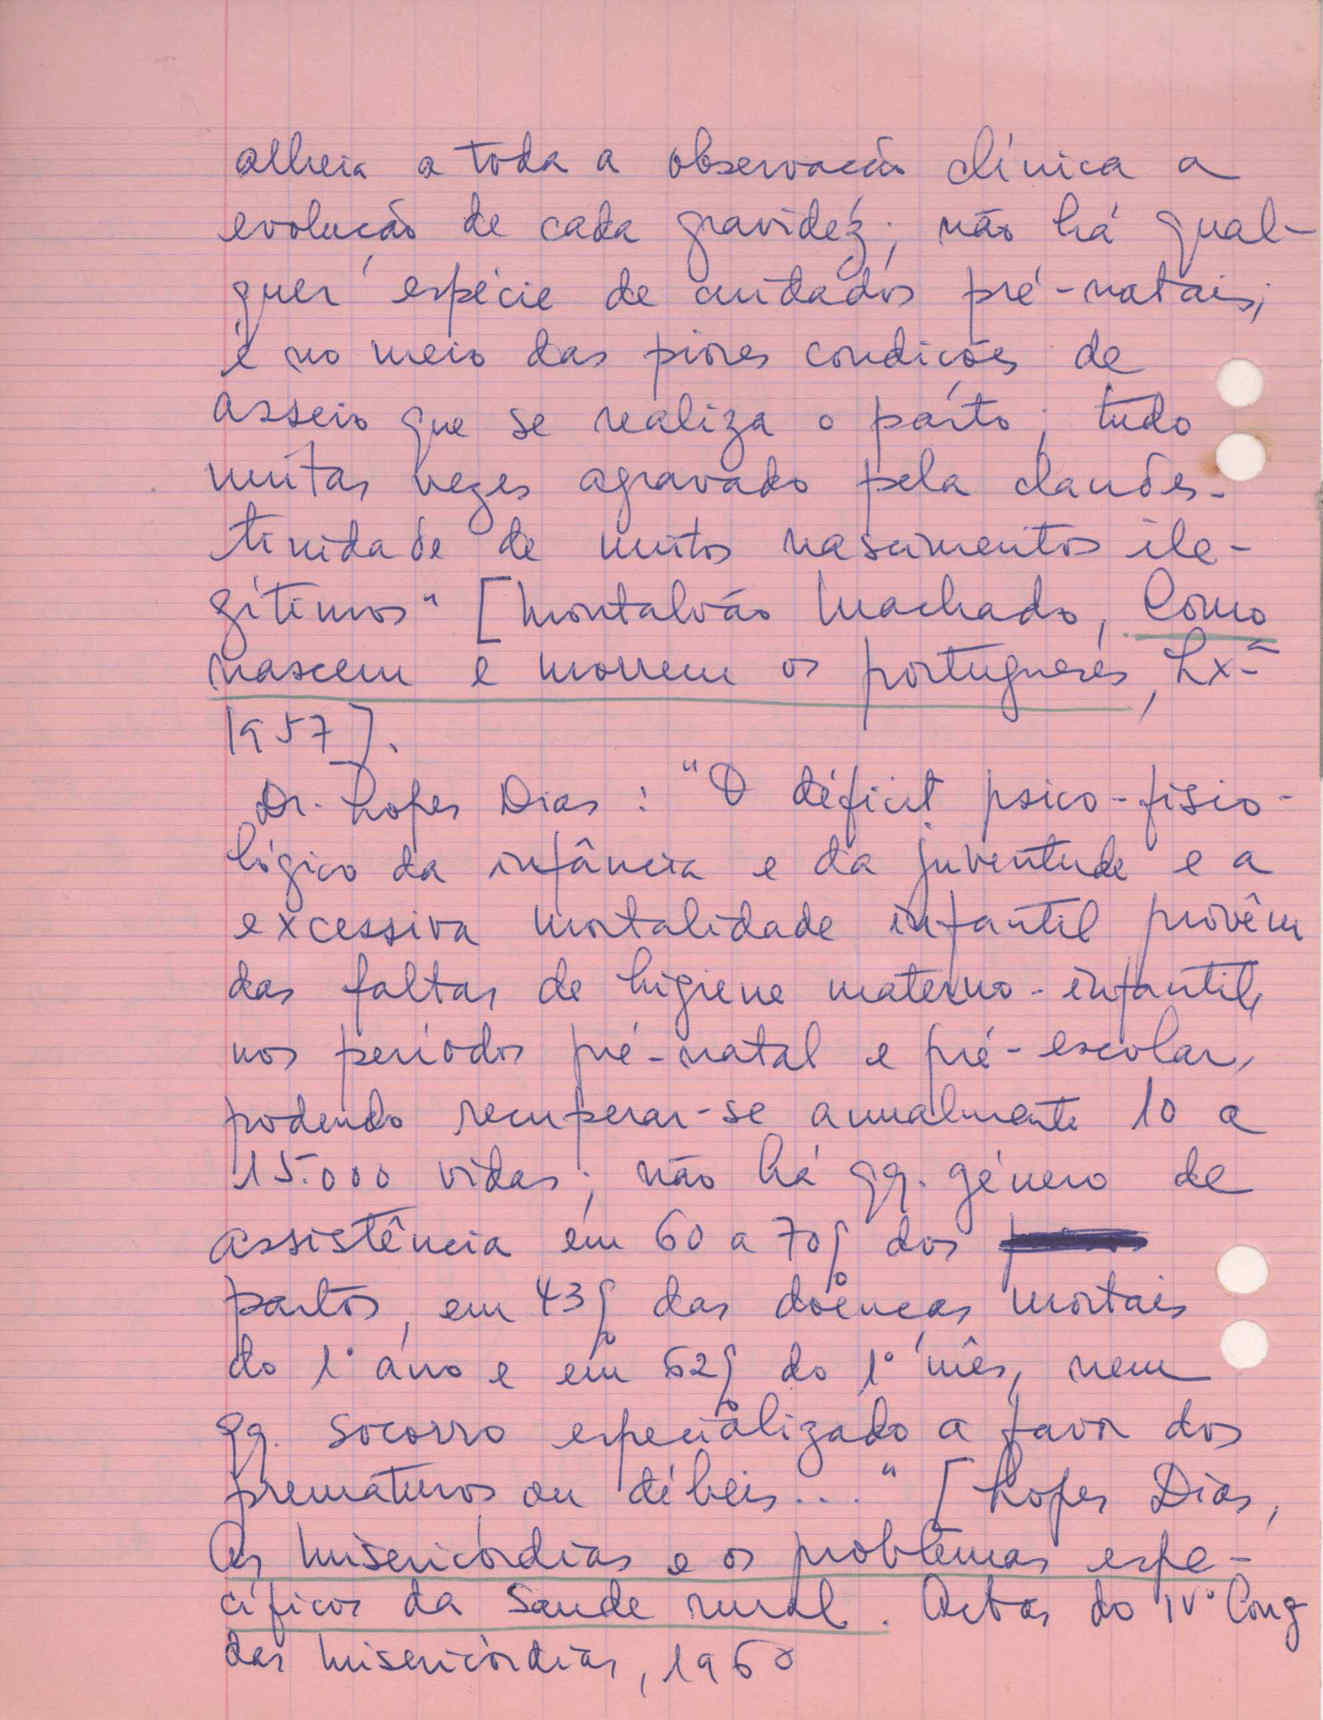 alheia a toda a observação clínica a
evolução de cada gravidêz; não há qual-
quer espécie de cuidados pré-natais;
é no meio das piores condições de
asseio que se realiza o parto; tudo
muitas vezes agravado pela clandes-
tinidade de muitos nascimentos ile-
gítimos" [Montalvão Machado, Como
nascem e morrem os portugueses, Lxª
1957].
Dr. Lopes Dias: "O déficit psico-fisio-
lógico da infância e da juventude e a
excessiva mortalidade infantil provêm
das faltas de higiene materno-infantil,
nos períodos pré-natal e pré-escolar,
podendo recuperar-se anualmente 10 a
15.000 vidas; não há qq. género de
assistência em 60 a 70% dos
partos, em 43% das doenças mortais
do 1º ano e em 62% do 1º mês, nem
qq. socorro especializado a favor dos
prematuros ou débeis..." [Lopes Dias,
As misericórdias e os problemas espe-
cíficos da Saude rural. Actas do IVº Cong
das misericórdias, 1960